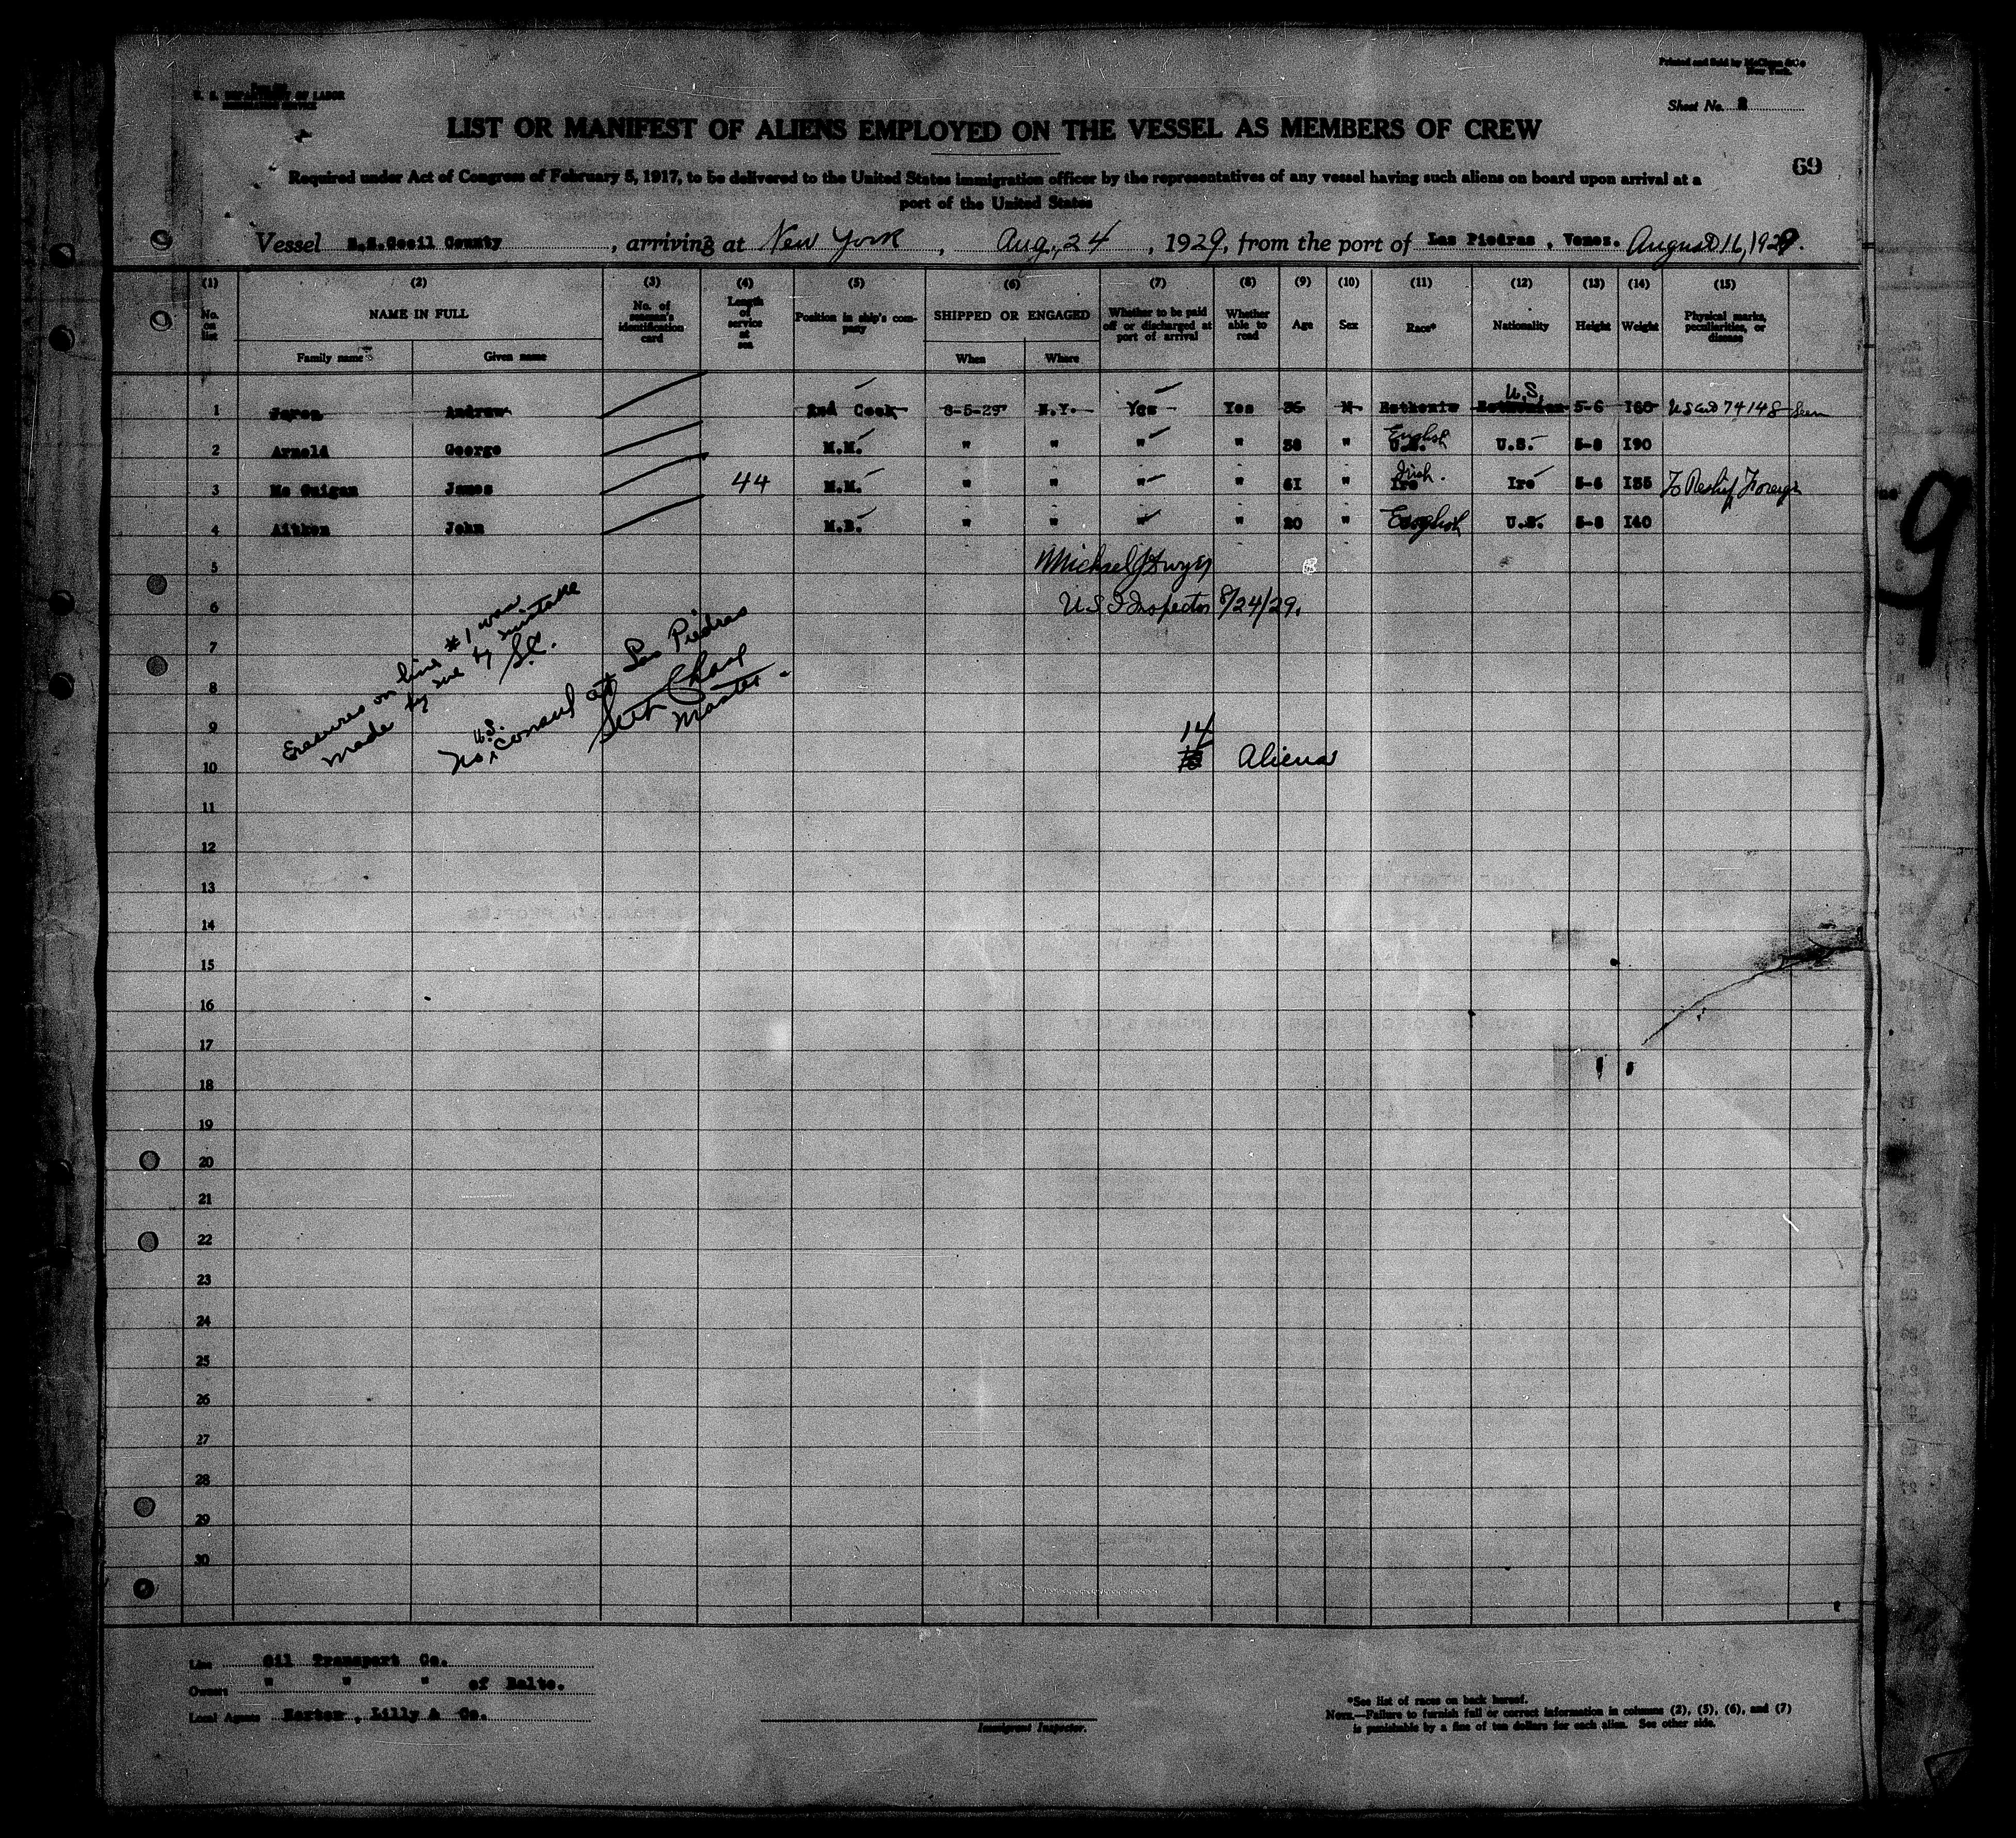 U. S. DEPARTMENT OF LABOR
IMMIGRATION SERVICE
Printed and Sold by
New York.
Sheet No. 2
LIST OR MANIFEST OF ALIENS EMPLOYED ON THE VESSEL AS MEMBERS OF CREW
69
Required under Act of Congress of February 5, 1917, to be delivered to the United States immigration officer by the representatives of any vessel having such aliens on board upon arrival at a
port of the United States
Vessel S.S.Cecil County , arriving at New York , Aug. 24 , 1929, from the port of Las Piedras , Venez. August 16, 1929.
(1) (2) (3) (4) (5) (6) (7) (8) (9) (10) (11) (12) (13) (14) (15)
No. on list NAME IN FULL Family name Given name No. of seaman's identification card Length of service at sea Position in ship's company SHIPPED OR ENGAGED When Where Whether to be paid off or discharged at port of arrival Whether able to read Age Sex Race* Nationality Height Weight Physical marks, peculiarities, or disease
1 Andrew 2nd Cook 8-5-29 N.Y. Yes Yes 36 M Esthonia Esthonian U.S. 5-6 160 US 74148 Seen
2 Arnold George M.M. " " " " 38 " English U.S. 5-8 190
3 Mc Guigan James 44 M.M. " " " " 61 " Irish Ire 5-6 135 To Reship Foreign
4 Aitken John M.B. " " " " 20 " English U.S. 5-8 140
5 Michael J Dwyer
6 U S I Inspector 8/24/29.
Erasures on line #1 was
made by me by mistake
S.C.
No U.S. Consul at Las Piedras
Seth Chase
Master
7
8
9 14
10 Aliens
11
12
13
14
15
16
17
18
19
20
21
22
23
24
25
26
27
28
29
30
9
Line Oil Transport Co.
Owners " " " of Balto.
Local Agents Norton , Lilly & Co.
Immigrant Inspector.
*See list of races on back hereof.
NOTE.—Failure to furnish full or correct information in columns (2), (5), (6), and (7)
is punishable by a fine of ten dollars for each alien. See other side.